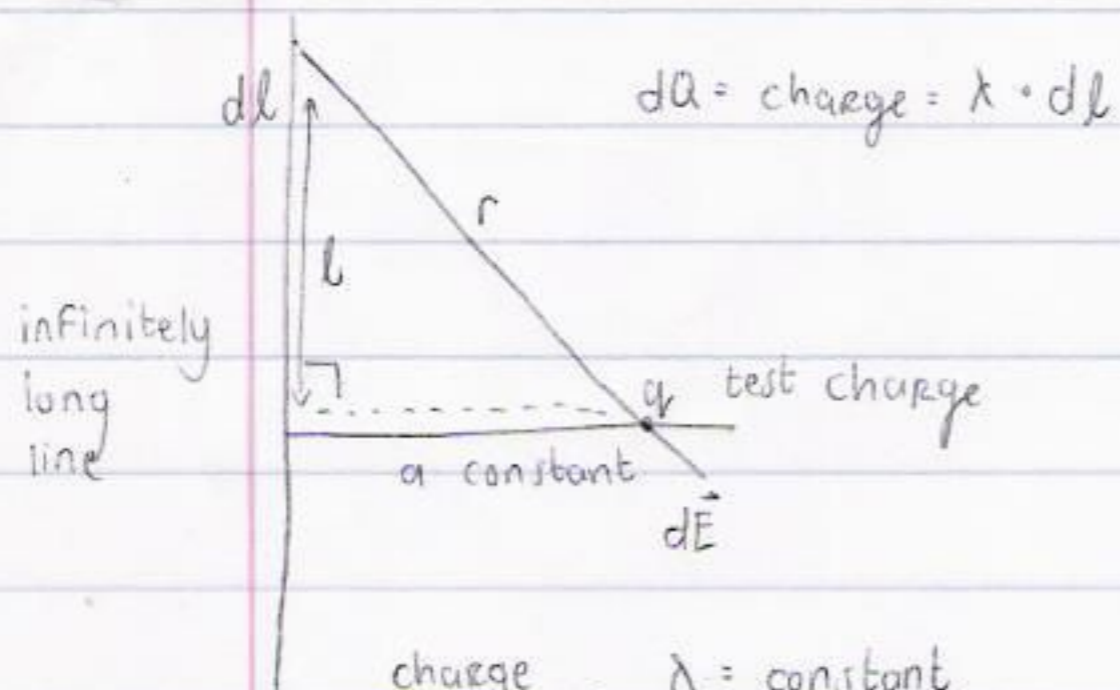 dl
dQ = charge = λ · dl
r
l
infinitely
long
line
q test charge
a constant
dE⃗
charge λ = constant